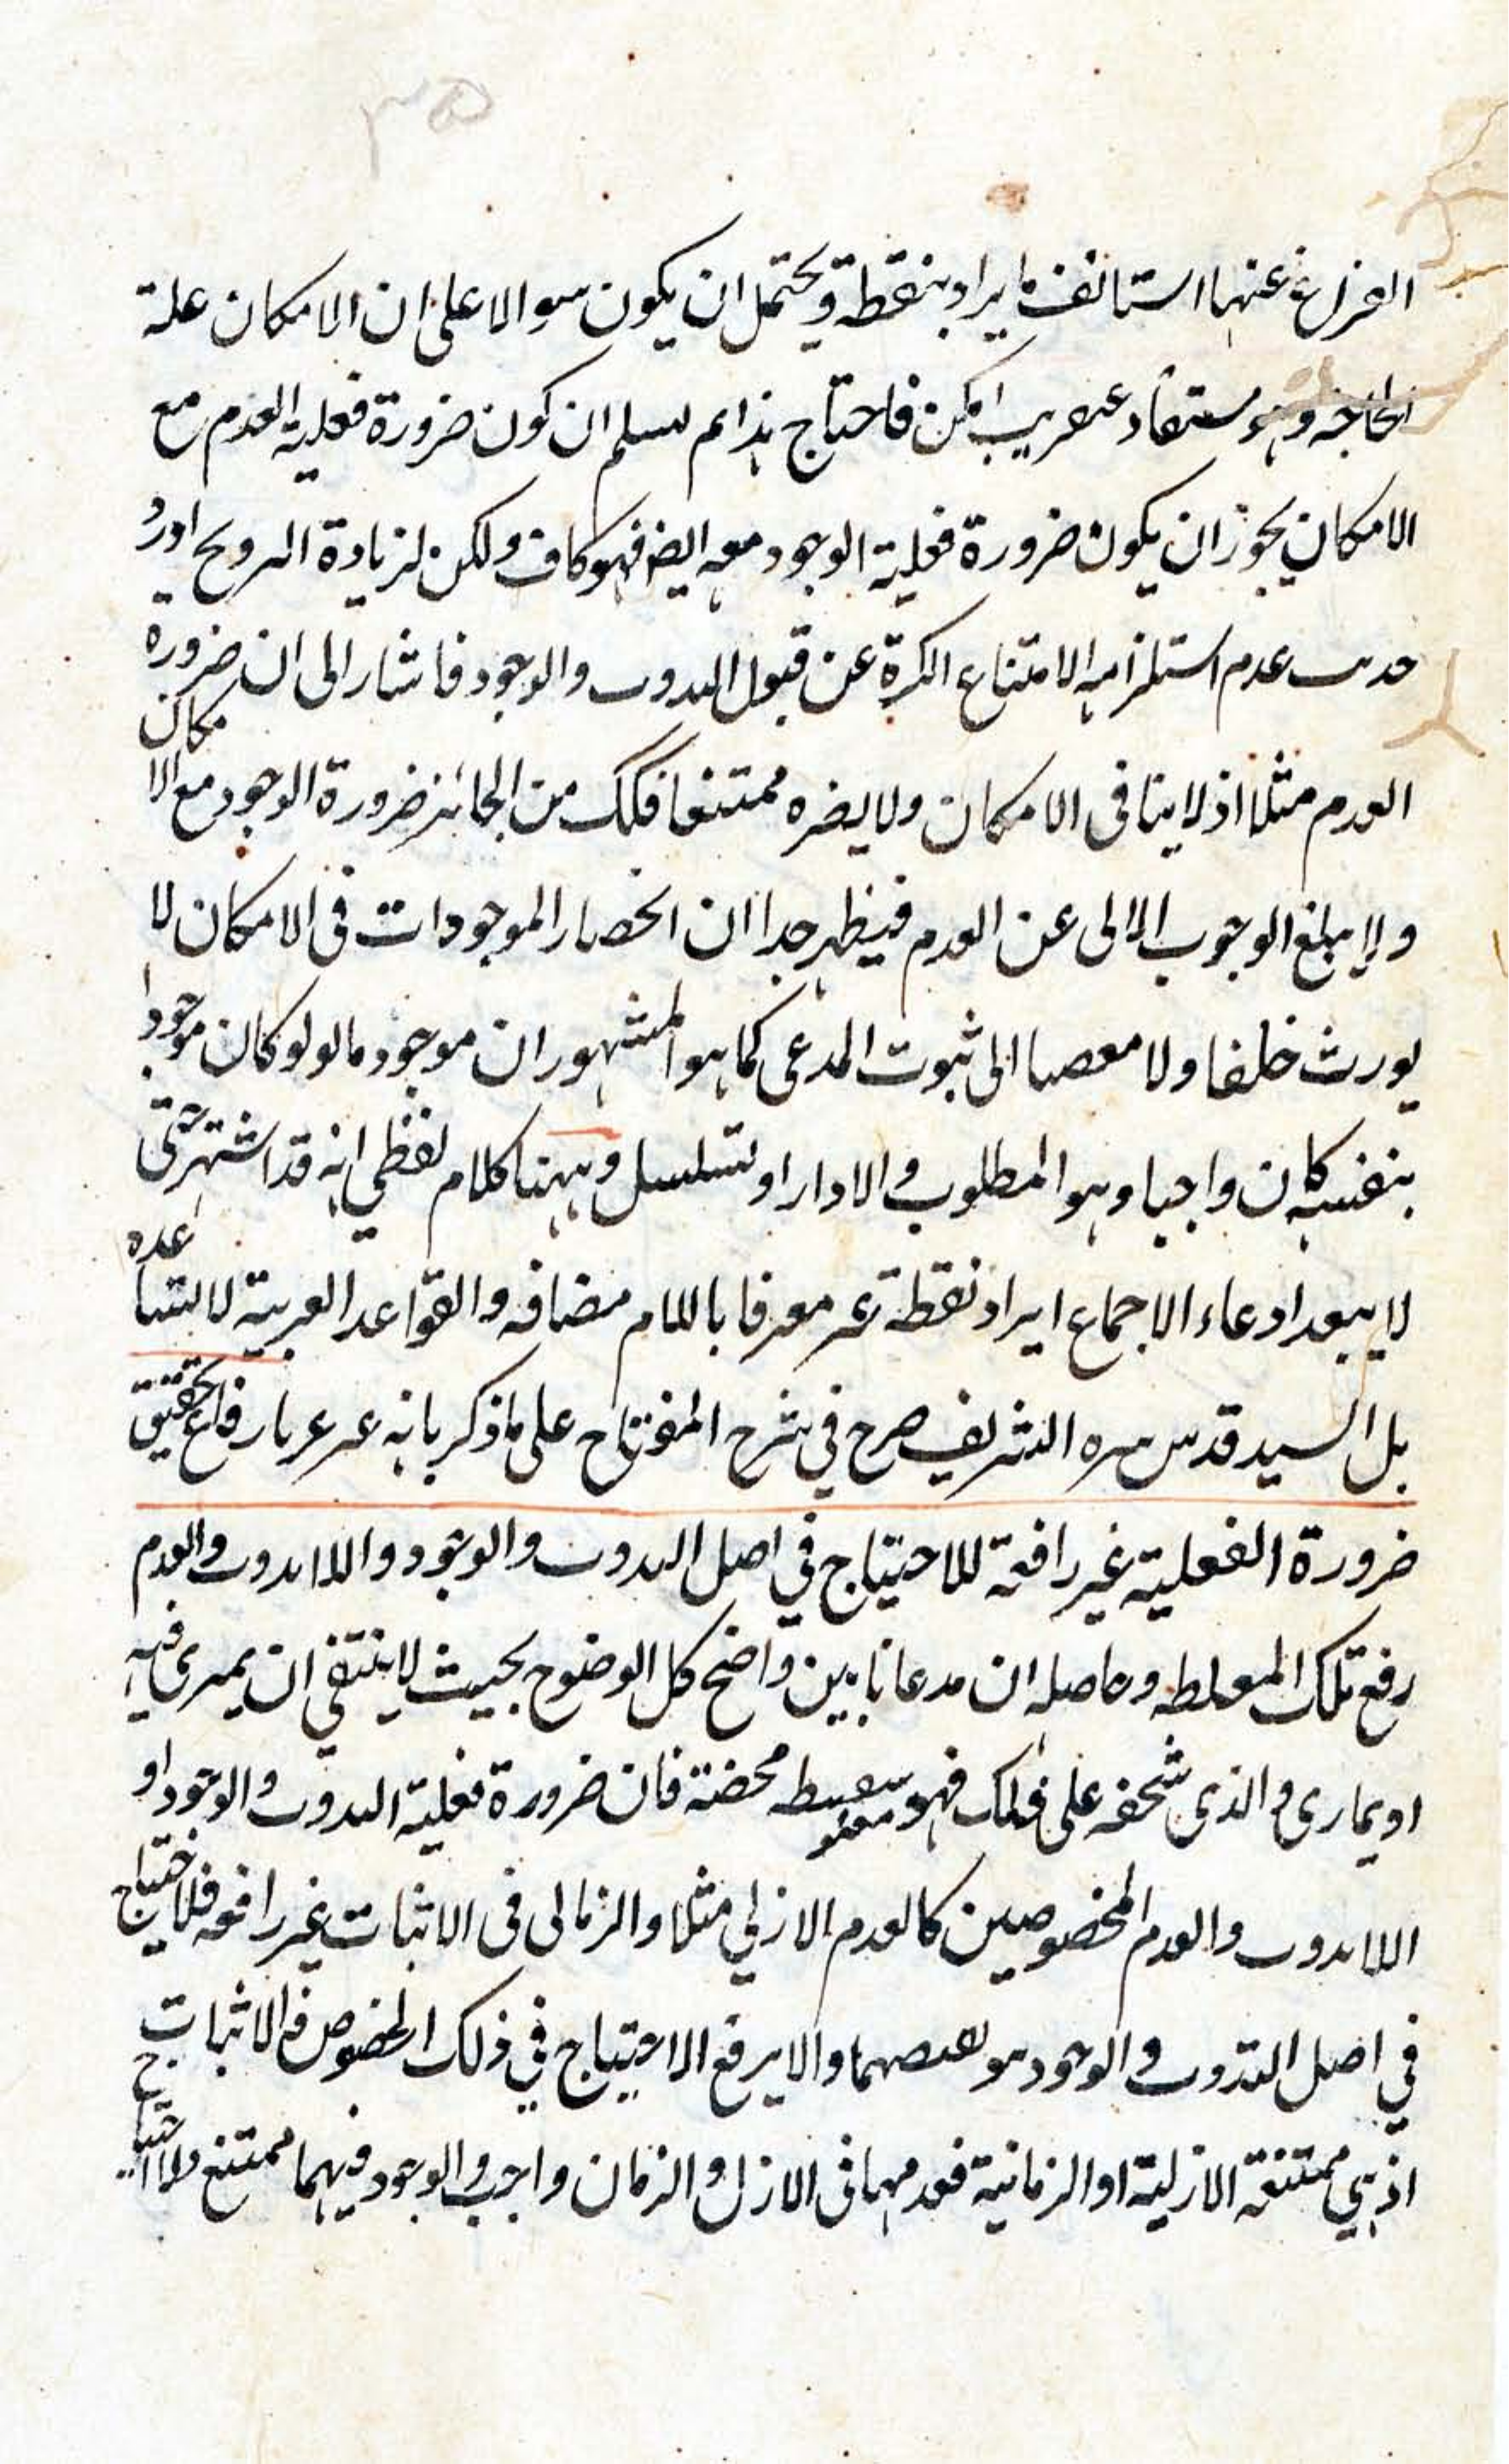 ٣٥
الفراغ عنها استانف ما يراد بنقطة ويحتمل ان يكون سوالا على ان الامكان علة
الحاجه وهو مستفاد عنقريب فاحتاج هذا لم يسلم ان كون ضرورة فعلية العدم مع
الامكان يجوز ان يكون ضرورة فعلية الوجود معه ايضا فهو كاف ولكن لزيادة اورد
عدم استلزامه الامتناع الكرة عن قبول والوجود فاشار الى ان ضرورة
العدم مثلا اذ لا ينافى الامكان ولا يضره ممتنعا فكك من الجائز ضرورة الوجود مع الامكان
ولا يبلغ الوجوب عن العدم فيظهر جدا ان انحصار الموجودات فى الامكان لا
يورث خلفا ولا الى ثبوت المدعى كما هو المشهور ان موجود ما لو كان موجودا
بنفسه كان واجبا وهو المطلوب والا دار او تسلسل وههنا كلام لفظي انه قد اشتهر حتى
لا يبعد ادعاء الاجماع ايراد نقطة غير معرفا باللام مضافه والقواعد العربية لا تساعده
بل السيد قدس سره الشريف صرح في شرح المفتاح على ما ذكر بانه تحقيق
ضرورة الفعلية غير رافعة للاحتياج في اصل والوجود والعدم
رفع تلك المغلطه وحاصله ان مدعانا بين واضح كل الوضوح بحيث لا ينتفى ان يمرى فيه
او يمارى والذى على ذلك فهو محضة فان ضرورة فعلية والوجود او
والعدم المخصوصين كالعدم الازلي مثلا فى الاثبات غير رافعه فلاحتياج
في اصل والوجود والا يرفع الاحتياج في ذلك الخصوص فالاثبات
اذ هي ممتنعة الازلية او الزمانية فعدمهما فى الازل والزمان واجب والوجود فيهما ممتنع